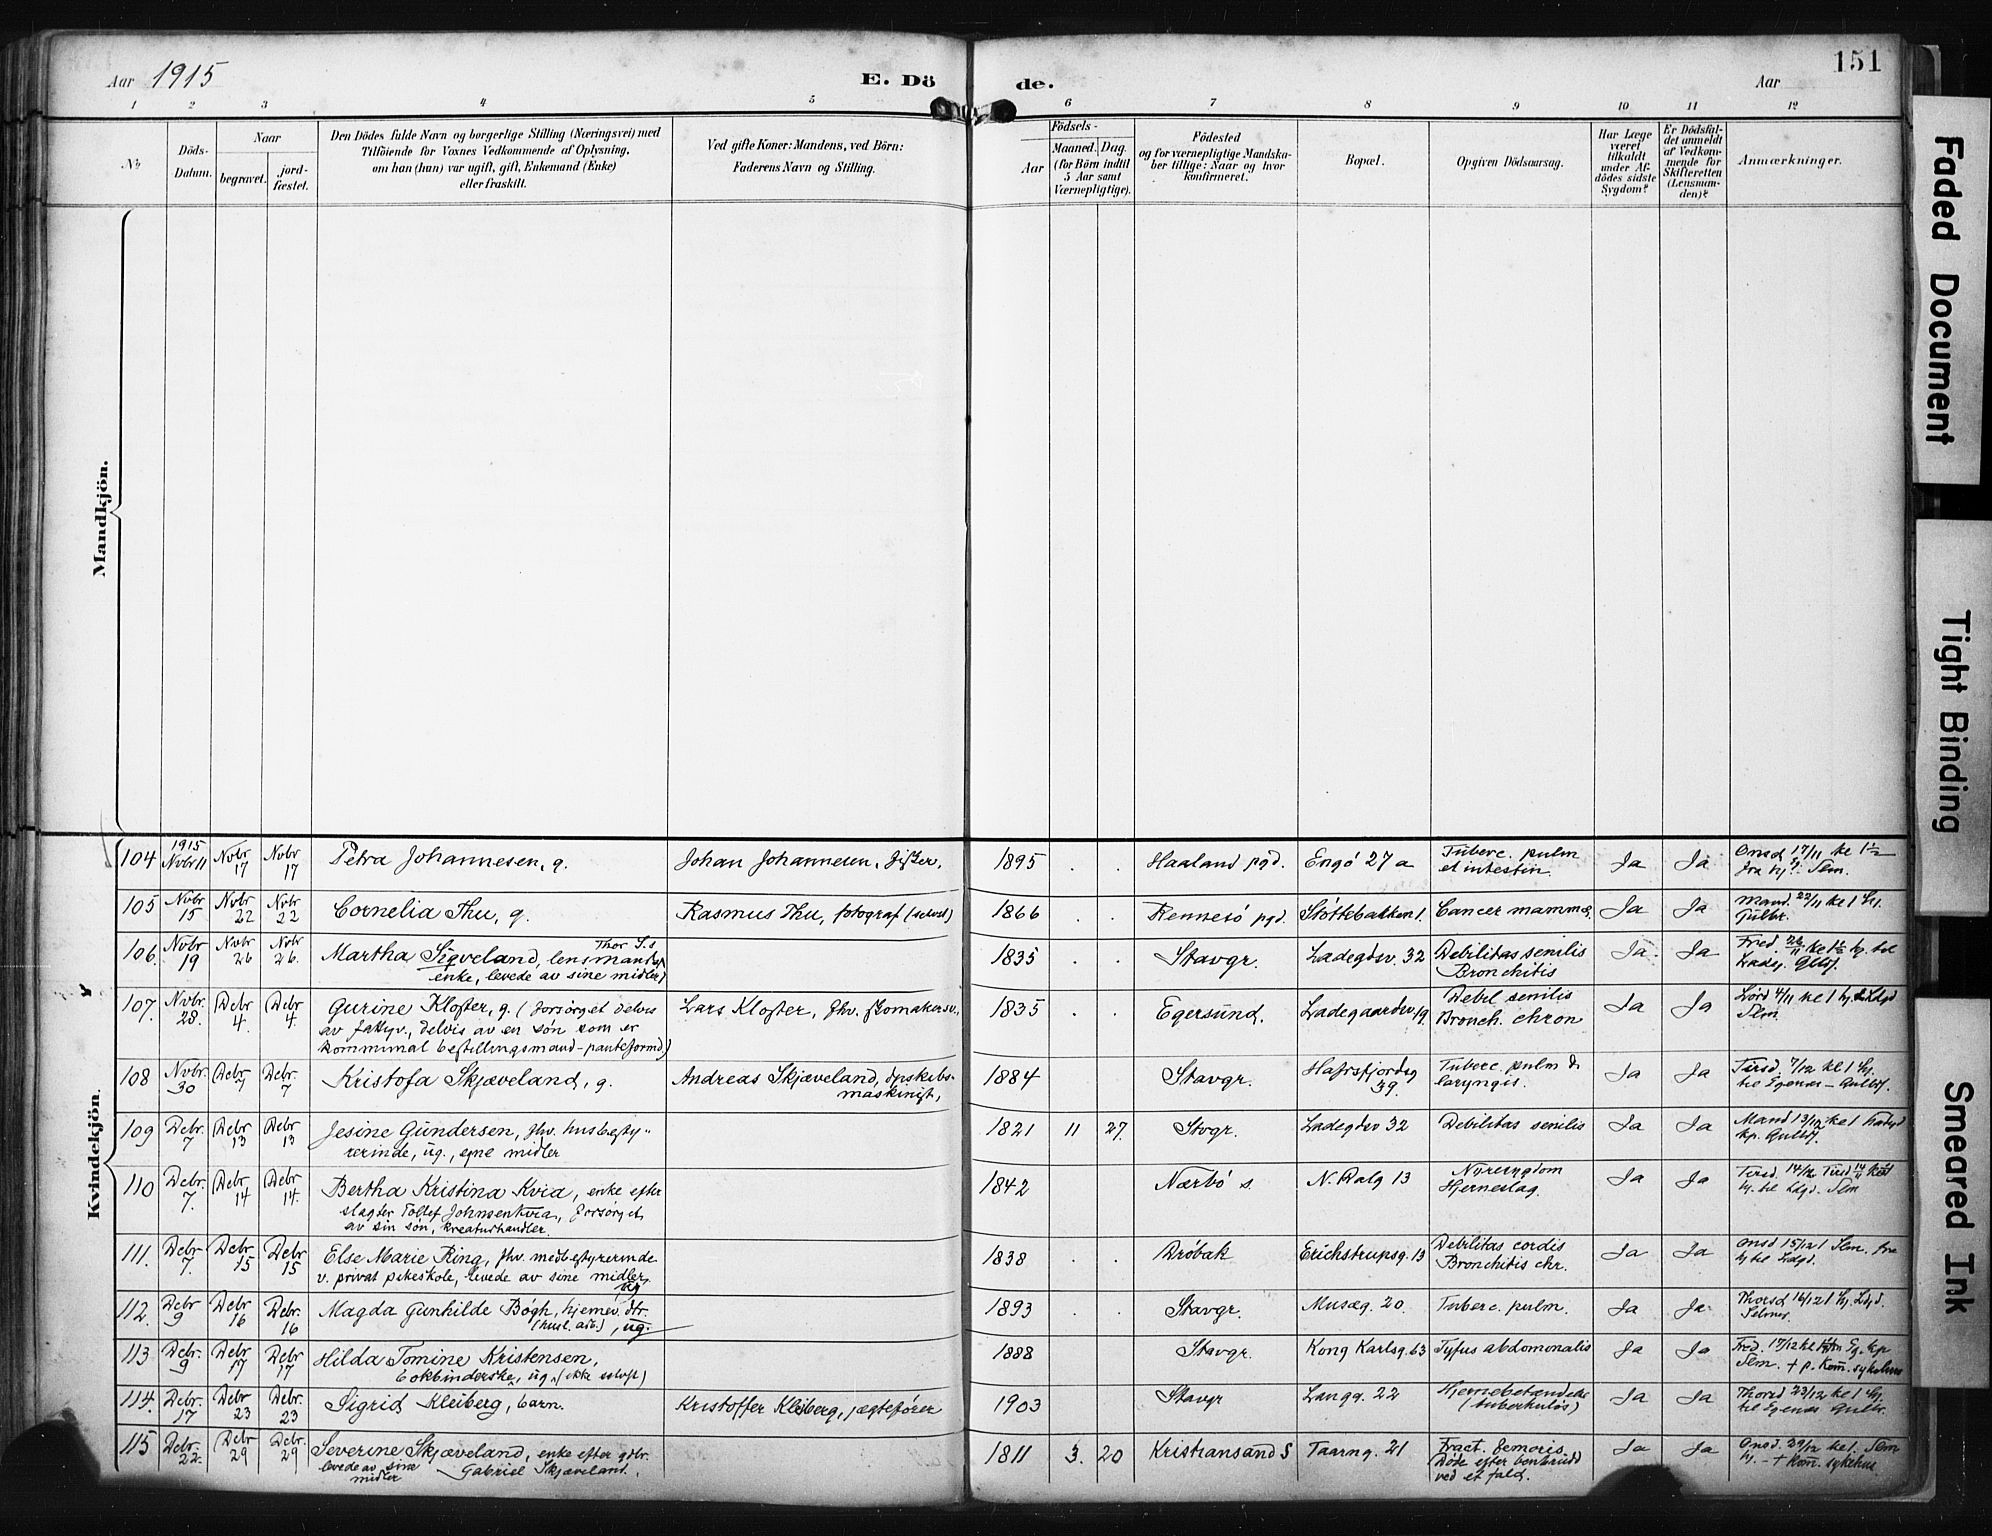 Aar 1915
E. Dö
de.
Aar
151
1 2 3 4 5 6 7 8 9 10 11 12
No
Döds-
Datum.
Naar
begravet.
jord-
fæstet.
Den Dödes fulde Navn og borgerlige Stilling (Næringsvei) med
Tilföiende for Voxnes Vedkommende af Oplysning,
om han (hun) var ugift, gift, Enkemand (Enke)
eller fraskilt.
Ved gifte Koner: Mandens, ved Börn:
Faderens Navn og Stilling.
Födsels-
Aar
Maaned.
Dag.
(for Börn indtil
5 Aar samt
Værnepligtige).
Födested
og for værnepligtige Mandska-
ber tillige: Naar og hvor
konfirmeret.
Bopæl.
Opgiven Dödsaarsag.
Har Læge
været
tilkaldt
under Af-
dödes sidste
Sygdom?
Er Dödsfal-
det anmeldt
af Vedkom-
mende for
Skifteretten
(Lensman-
den)?
Anmærkninger.
Mandkjön.
Kvindekjön.
1915
104 Novbr 11 Novbr 17 Novbr 17 Petra Johannesen, g. Johan Johannesen, fisker. 1895 Haaland pgd. Engö 27 a Tuberc. pulm
et intestin. Ja Ja Onsd 17/11 kl 1½
105 Novbr 15 Novbr 22 Novbr 22 Cornelia Thu, g. Rasmus Thu, fotograf (selvst) 1866 Rennesö pgd. Støttebakken 1. Cancer mammæ Ja Ja Mand. 22/11 kl 1
106. Novbr 19 Novbr 26 Novbr 26. Martha Sigveland, lensmand
enke, levede av sine midler) 1835 Stavgr. Ladegdsv. 32 Debilitas senilis
Bronchitis Ja Ja Fred 26/11 kl 1½
107. Novbr. 28. Debr 4. Debr 4. Gurine Kloster, g. (forsörget delvis
av fattigv., delvis av en sön som er
kommunal bestillingsmand-panteformd.) Lars Kloster, fhv. skomakersv., 1835 Egersund. Ladegaardsv 19. Debil senilis
Bronch. chron Ja Ja
108 Novbr. 30 Debr 7 Debr. 7 Kristofa Skjæveland, g. Andreas Skjæveland, dpskibs-
maskinist, 1884 Stavgr. Hafrsfjordsg
39. Tuberc. pulm &
laryngis. Ja Ja Tirsd. 7/12 kl 1
109 Debr. 7 Debr 13 Debr 13 Jesine Gundersen, fhv. husbesty-
rerinde, ug., egne midler 1821 11 27. Stvgr. Ladegdsv 32 Debilitas senilis Ja Ja Mand 13/12 kl 1
110 Debr. 7. Debr 14 Debr 14. Bertha Kristina Kvia, enke efter
slagter Tollef Johnsen Kvia, forsörget
av sin sön, kreaturhandler. 1842 Nærbö s. N. Dalg 13 Nyresygdom
Hjerneslag. Ja Ja Tirsd. 14/12
111. Debr 7. Debr. 15 Debr 15 Else Marie Ring, fhv. medbestyrerinde
v. privat pikeskole, levede av sine midler,
ug 1838 Dröbak Erichstrupsg. 13 Debilitas cordis
Bronchitis chr. Ja Ja Onsd 15/12 1
112. Debr 9 Debr 16 Debr. 16 Magda Gunhilde Bögh, hjemev. dtr.
(husl. arb.), ug. 1893 Stavgr. Musæg. 20. Tuberc. pulm. Ja Ja Thorsd 16/12 1
113 Debr. 9 Debr. 17 Debr 17 Hilda Tomine Kristensen,
bokbinderske, ug. (ikke selvst) 1888 Stavgr. Kong Karlsg. 63 Tyfus abdominalis Ja Ja Fred. 17/12
+ p. Kom. sykehus
114. Debr. 17 Debr 23 Debr 23 Sigrid Kleiberg, barn. Kristoffer Kleiberg, jægtefører 1903 Stavgr Langg. 22 Hjernebetændelse
(tuberkulös) Ja Ja Thorsd 23/12 kl 1
115 Debr. 22. Debr 29 Debr. 29 Severine Skjæveland, enke efter gdbr.
levede av sine
midler Gabriel Skjæveland. 1811 3. 20 Kristiansand S Taarng. 21 Fract. femoris
Döde efter benbrudd
ved et fald. Ja Ja Onsd. 29/12 kl 1.
+ Kom. sykehus
Faded Document
Tight Binding
Smeared Ink